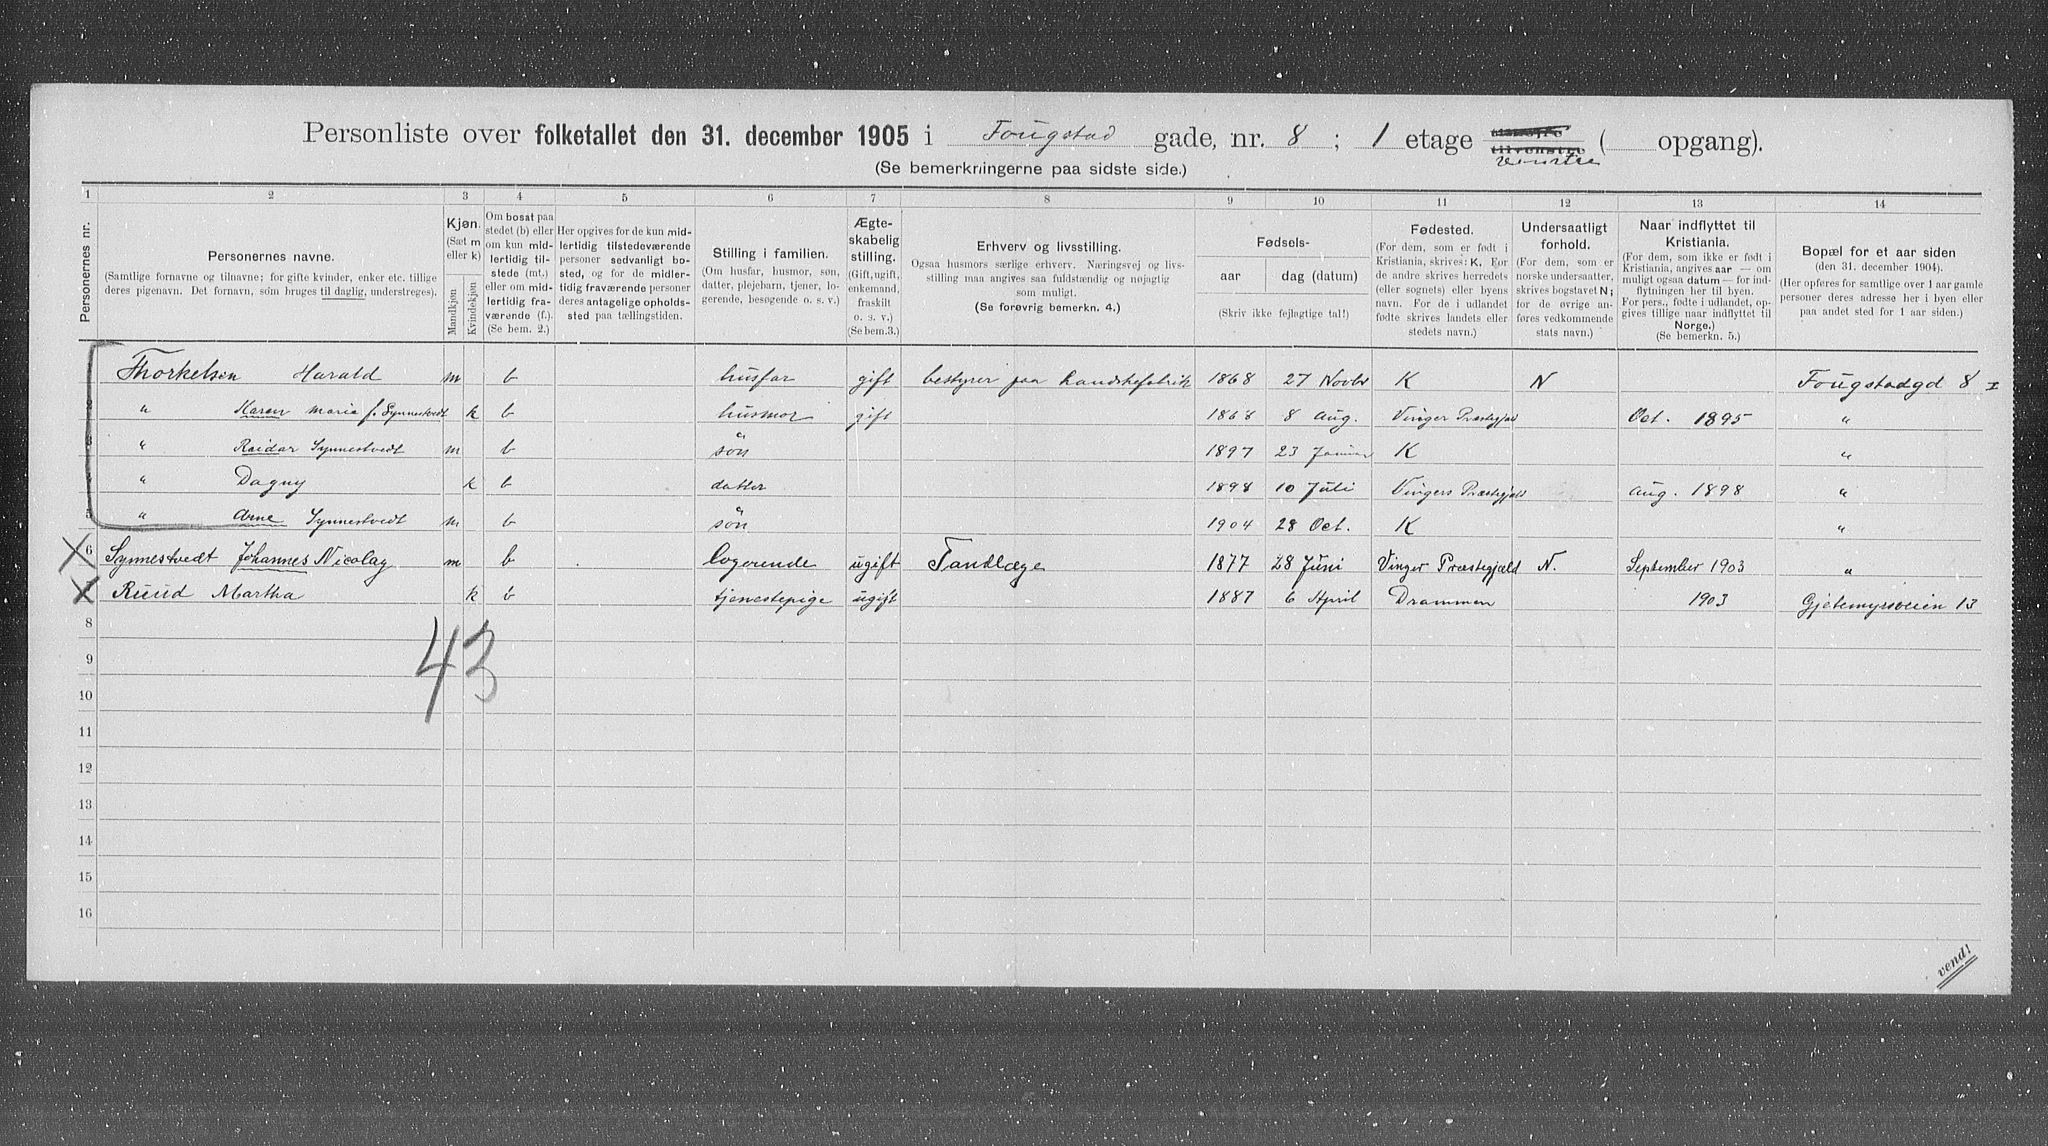 Personliste over folketallet den 31. december 1905 i Fougstad gade, nr. 8 ; 1 etage venstre ( opgang).
(Se bemerkningerne paa sidste side.)
1 2 3 4 5 6 7 8 9 10 11 12 13 14
Personernes nr.
Personernes navne.
(Samtlige fornavne og tilnavne; for gifte kvinder, enker etc. tillige
deres pigenavn. Det fornavn, som bruges til daglig, understreges).
Kjøn.
(Sæt m
eller k)
Mandkjøn
Kvindekjøn
Om bosat paa
stedet (b) eller
om kun mid-
lertidig til-
stede (mt.)
eller om mid-
lertidig fra-
værende (f.).
(Se bem. 2.)
Her opgives for de kun mid-
lertidig tilstedeværende
personer sedvanligt bo-
sted, og for de midler-
tidig fraværende personer
deres antagelige opholds-
sted paa tællingstiden.
Stilling i familien.
(Om husfar, husmor, søn,
datter, plejebarn, tjener, lo-
gerende, besøgende o. s. v.)
Ægte-
skabelig
stilling.
(Gift, ugift,
enkemand,
fraskilt
o. s. v.)
(Se bem.3.)
Erhverv og livsstilling.
Ogsaa husmors særlige erhverv. Næringsvej og livs-
stilling maa angives saa fuldstændig og nøjagtig
som muligt.
(Se forøvrig bemerkn. 4.)
Fødsels-
aar
dag (datum)
(Skriv ikke fejlagtige tal!)
Fødested.
(For dem, som er født i
Kristiania, skrives: K. For
de andre skrives herredets
(eller sognets) eller byens
navn. For de i udlandet
fødte skrives landets eller
stedets navn.)
Undersaatligt
forhold.
(For dem, som er
norske undersaatter,
skrives bogstavet N;
for de øvrige an-
føres vedkommende
stats navn.)
Naar indflyttet til
Kristiania.
(For dem, som ikke er født i
Kristiania, angives aar — om
muligt ogsaa datum — for ind-
flytningen her til byen.
For pers., fødte i udlandet, op-
gives tillige naar indflyttet til
Norge.)
(Se bemerkn. 5.)
Bopæl for et aar siden
(den 31. december 1904).
(Her opføres for samtlige over 1 aar gamle
personer deres adresse her i byen eller
paa andet sted for 1 aar siden.)
Thorkelsen Harald m b husfar gift bestyrer paa handskefabrik 1868 27 Novbr K N Fougstadgd 8 I
" Karen Marie f. Synnestvedt k b husmor gift 1868 8 Aug. Vinger Præstegjæld Oct. 1895 "
" Reidar Synnestvedt m b søn 1897 23 Januar K "
" Dagny k b datter 1898 10 Juli Vingers Præstegjæld Aug. 1898 "
5 " Arne Synnestvedt m b søn 1904 28 Oct. K "
6 Synnestvedt Johannes Nicolay m b logerende ugift Tandlæge 1877 28 Juni Vinger Præstegjæld N. September 1903 "
Ruud Martha k b tjenestepige ugift 1887 6 April Drammen 1903 Gjetemyrsveien 13
8
43
9
10
11
12
13
14
15
16
vend!